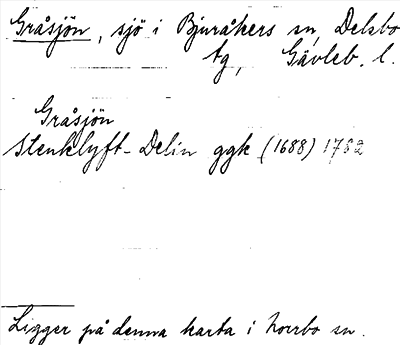 Gråsjön, sjö i Bjuråkers sn, Delsbo
tg, Gävleb. l.
Gråsjön
Stenklyft-Delin ggk (1688) 1782
Ligger på denna karta i Norrbo sn.